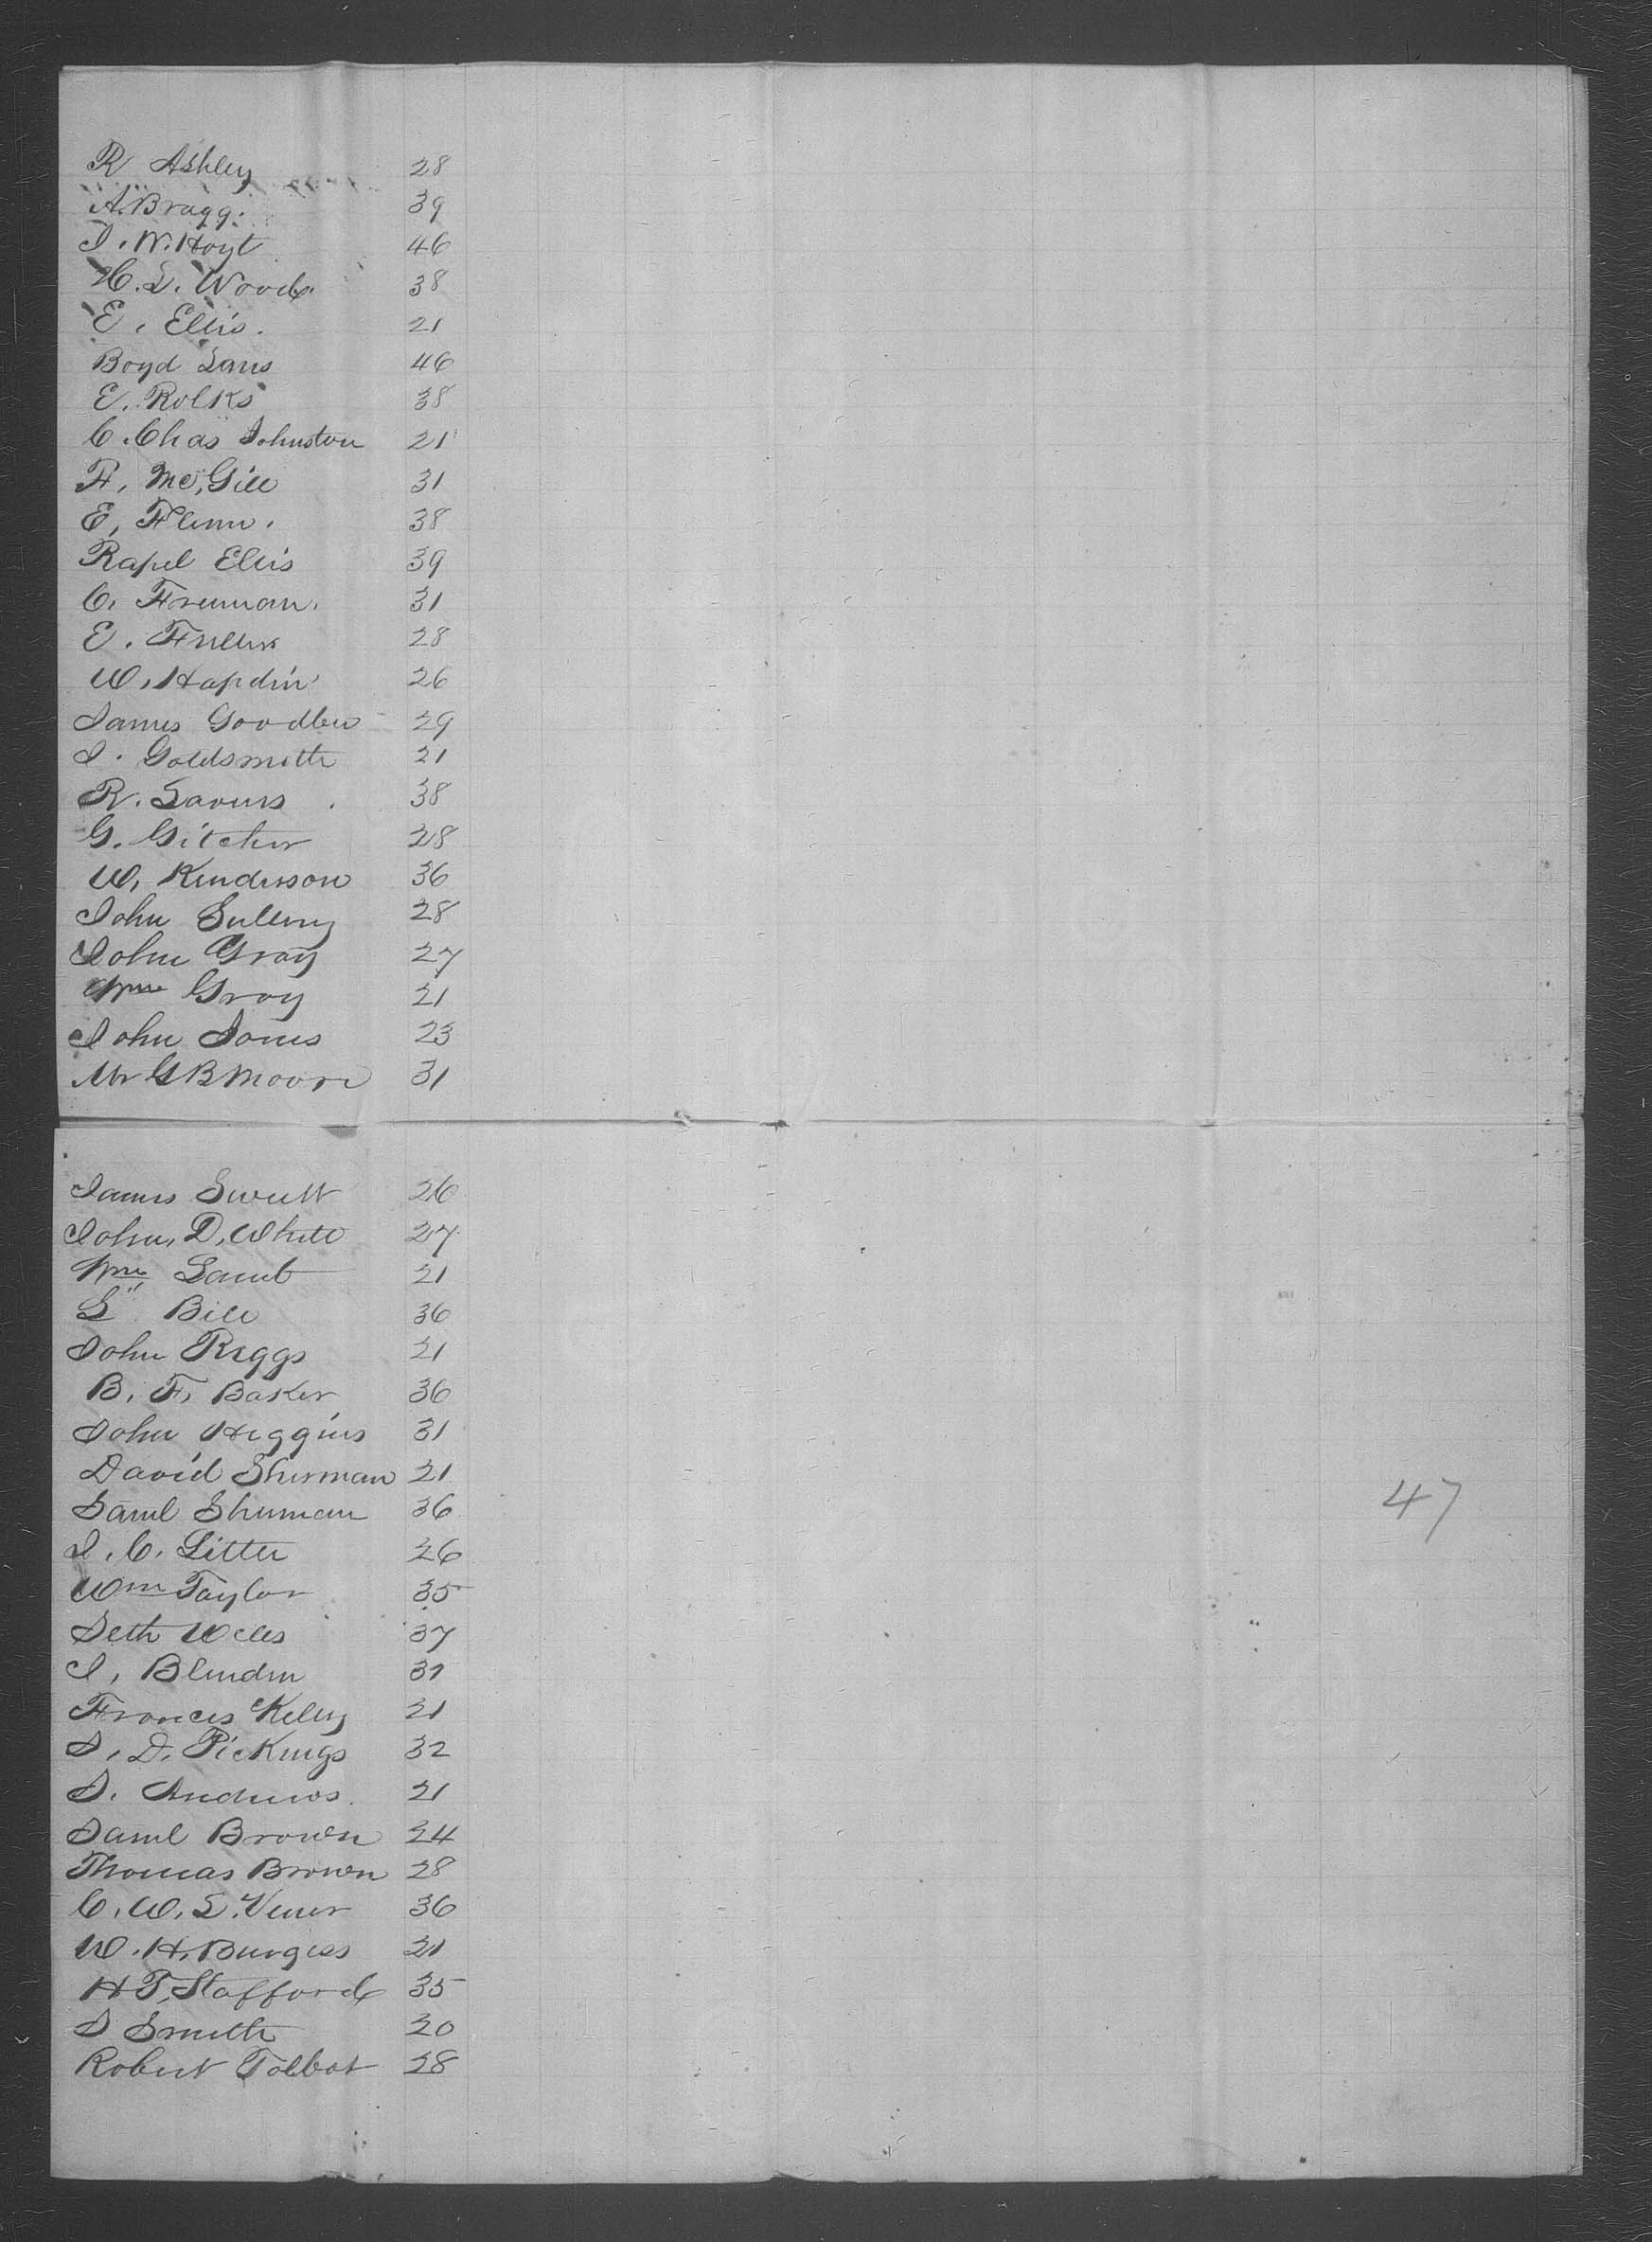 R Ashley 28
A. Bragg. 39
J. W. Hoyt 46
H. L. Woods 38
E. Ellis. 21
Boyd Sans 46
E. Rolks 38
C. Chas Johnston 21
F. McGill 31
E, Flinn. 38
Rapel Ellis 39
C. Freeman. 31
E. Fuller 28
W. Hapdin 26
James Goodlen 29
J. Goldsmith 21
R. Savers 38
G. Gitcher 28
W. Kinderson 36
John Sullivy 28
John Gray 27
Wm Gray 21
John Jones 23
Mr G B Moore 31
James Swett 26
John. D. White 27
Wm Lamb 21
L Bill 36
John Riggs 21
B. F. Baker 36
John Higgins 31
David Sherman 21
Saml Shuman 36
J. C. Litter 26
Wm Taylor 35
Seth Wells 37
J. Blindin 31
Frances Kelly 21
S. D. Pickings 32
S. Andrews. 21
Saml Brown 24
Thomas Brown 28
C. W. L. Viner 36
W. H. Burgess 21
H T. Stafford 35
S Smith 20
Robert Tolbot 28
47